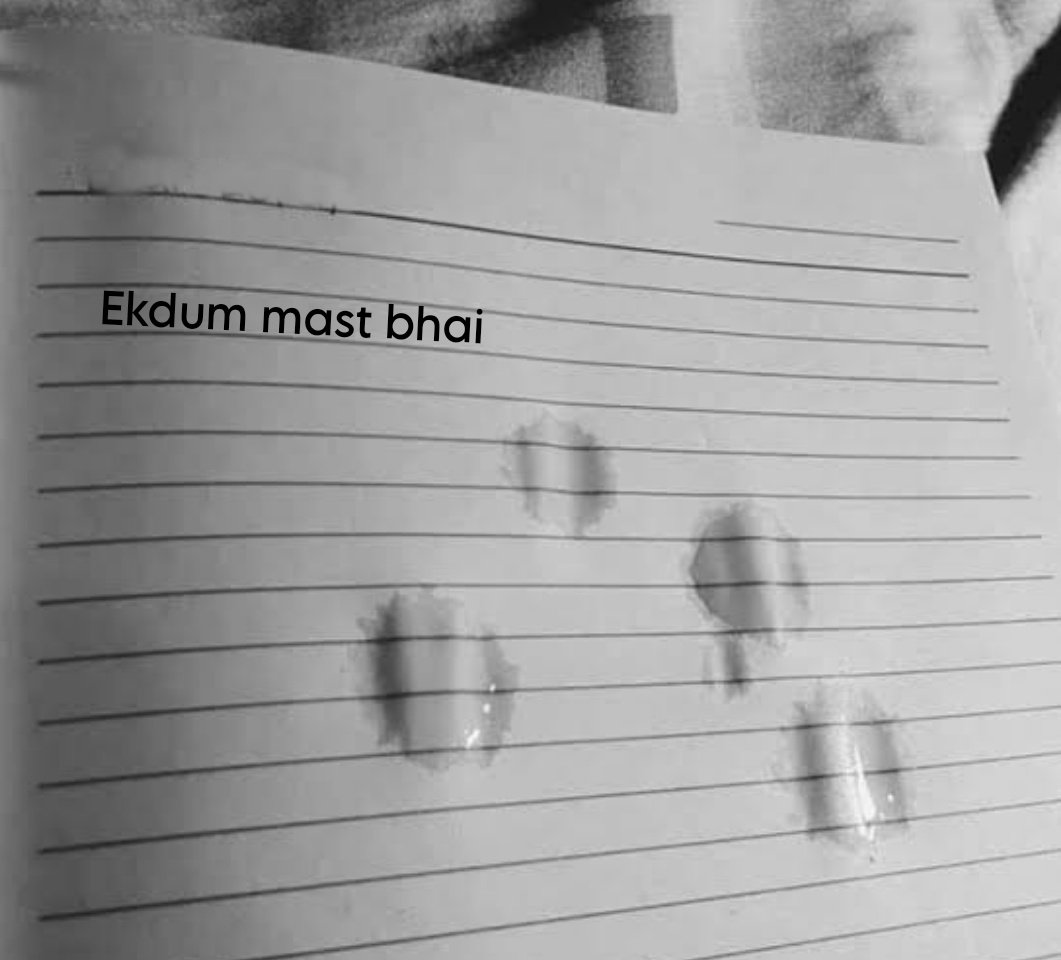 Ekdum mast bhai